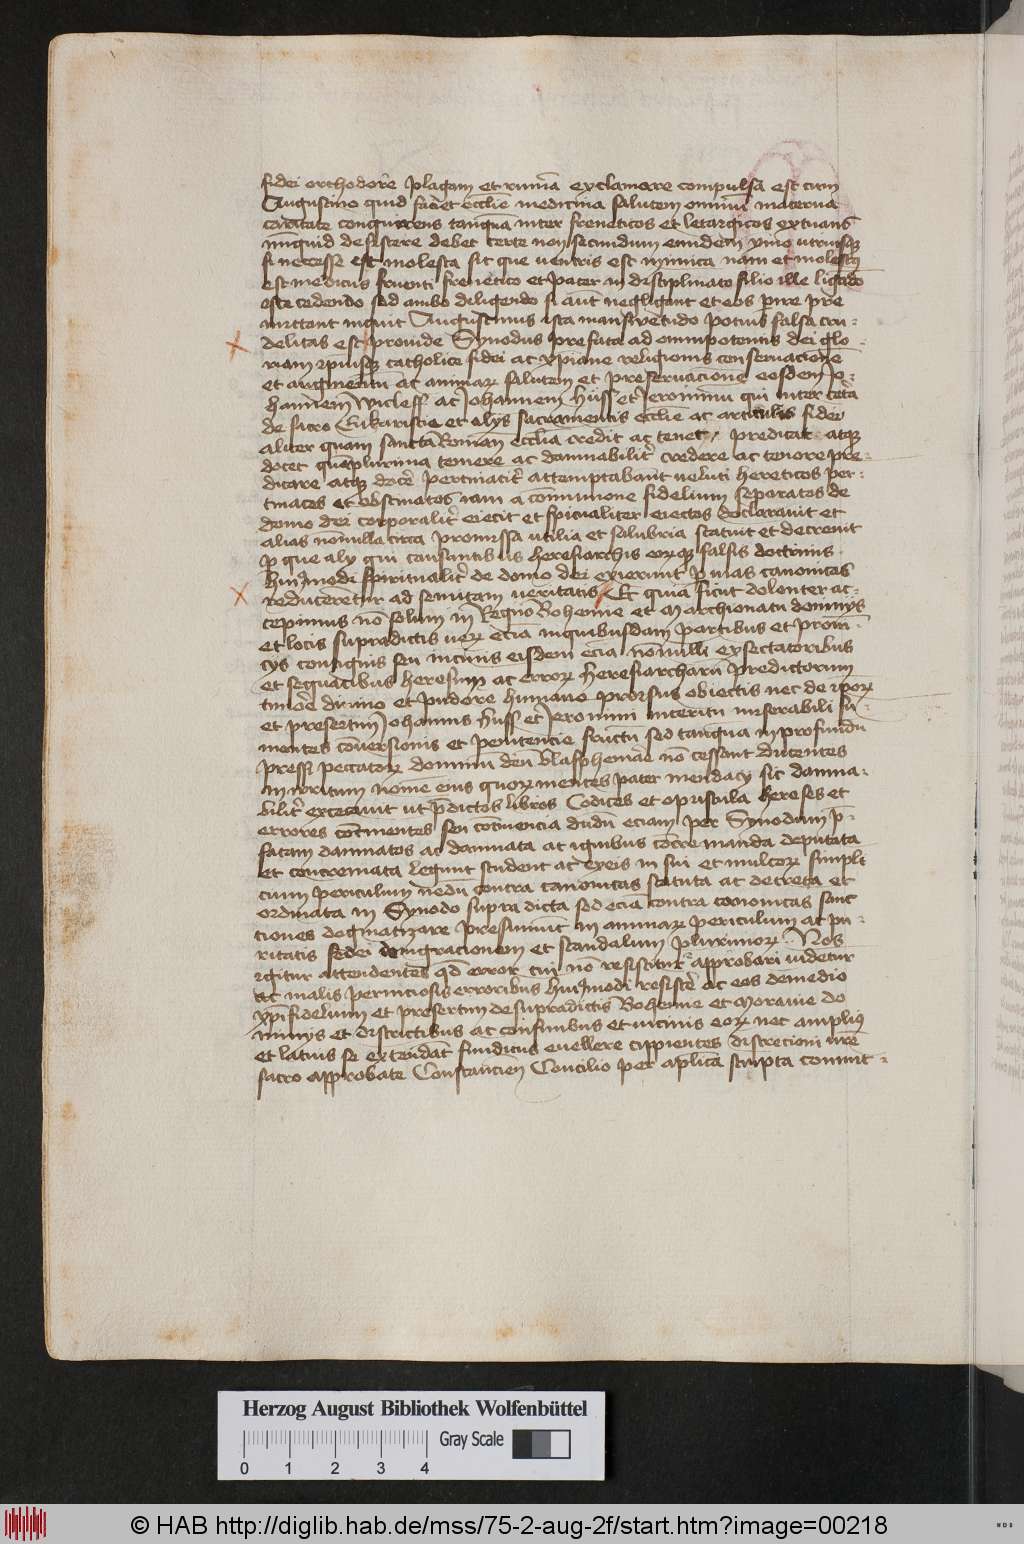 fidei orthodoxe plagam et ruinam exclamare compulsa est cum
Augustino quid facit ecclie medicina salutem omniu materna
caritate conquirens tanqua inter freneticos et letargicos extuans
nunquid desistere debet certe non
si necesse est molesta sit que neutris est inimica nam et molestus
est medicus furenti frenetico et pater indisciplinato filio ille ligando
iste cedendo sed ambo diligendo si aut negligant et eos pire per
mittant inquit Augustinus ista mansuetudo potius falsa cru-
delitas est proinde Synodus prefata ad omnipotentis dei glo-
riam ipiusq catholice fidei ac xpiane religionis conservacione
et augmentu ac animar salutem et preservacione eosdem Jo-
hannem Wicleff ac Johannem Huss et Jeronimu qui inter cetera
de sacro Eukaristie et alys sacramentis ecclie ac articulis fidei
aliter quam sancta Roman ecclia credit ac tenet predicat atq
docet quaplurima temere ac damnabilit credere ac tenere pre-
dicare atq docere pertinacit attemptabant veluti hereticos per-
tinaces et obstinatos iam a comunione fidelium separatos de
domo dei corporalit eiecit et spiritualiter eiectos declaravit et
alias nonnulla circa promissa utilia et salubria statuit et decrevit
p que aly qui causantibus ijs heresiarchis eorq falsis doctrinis
huiusmodi spiritualit de domo dei exierunt p vias canonicas
reducerentur ad semitam veritatis Et quia sicut dolenter ac-
cepimus no solum in Regno Bohemie et Marchionatu domnijs
et locis supradictis ver ecia in quibusdam partibus et provin-
cys contiguis seu vicinis eisdem ecia nonnulli ex sectatoribus
et sequacibus heresum ac error heresiarcharu predictorum
timore divino et pudore humano prorsus obiectis nec de ipor
et presertim Johannis Huss et Jeronimi interitu miserabili su-
mentes conversionis et penitencie fructu sed tanqua in profundu
pressi peccator dominu deu blasphemare no cessant ducentes
in irritum nome eius quor mentes pater mendacy sic damna-
bilit excecavit ut pdictos libros Codices et opuscula hereses et
errores continentes seu continencia dudu eciam per Synodum p-
fatam damnatos ac damnata ac ignibus concremanda deputata
et concremata legunt student ac exeis in sui et multor simpli
cium periculum nedu contra canonicas statuta ac decreta et
ordinata in Synodo supra dicta sed ecia contra canonicas sanc
tiones dogmatizare presumunt in animar periculum ac pu-
ritatis fidei denigracionem et scandalum plurimor Nos
igitur attendentes qd error cui no resistitur approbari videtur
ac malis perniciosis erroribus huiusmodi resistere ac eos de medio
xpifidelium et presertim de supradictis Bohemie et Moravie do
minys et districtibus ac confinibus et vicinis eor nec amplius
et latius se extendat funditus evellere cupientes discrecioni vre
sacro approbate Constancien Concilio per aplica scripta committ-
Herzog August Bibliothek Wolfenbüttel
Gray Scale
0 1 2 3 4
© HAB http://diglib.hab.de/mss/75-2-aug-2f/start.htm?image=00218